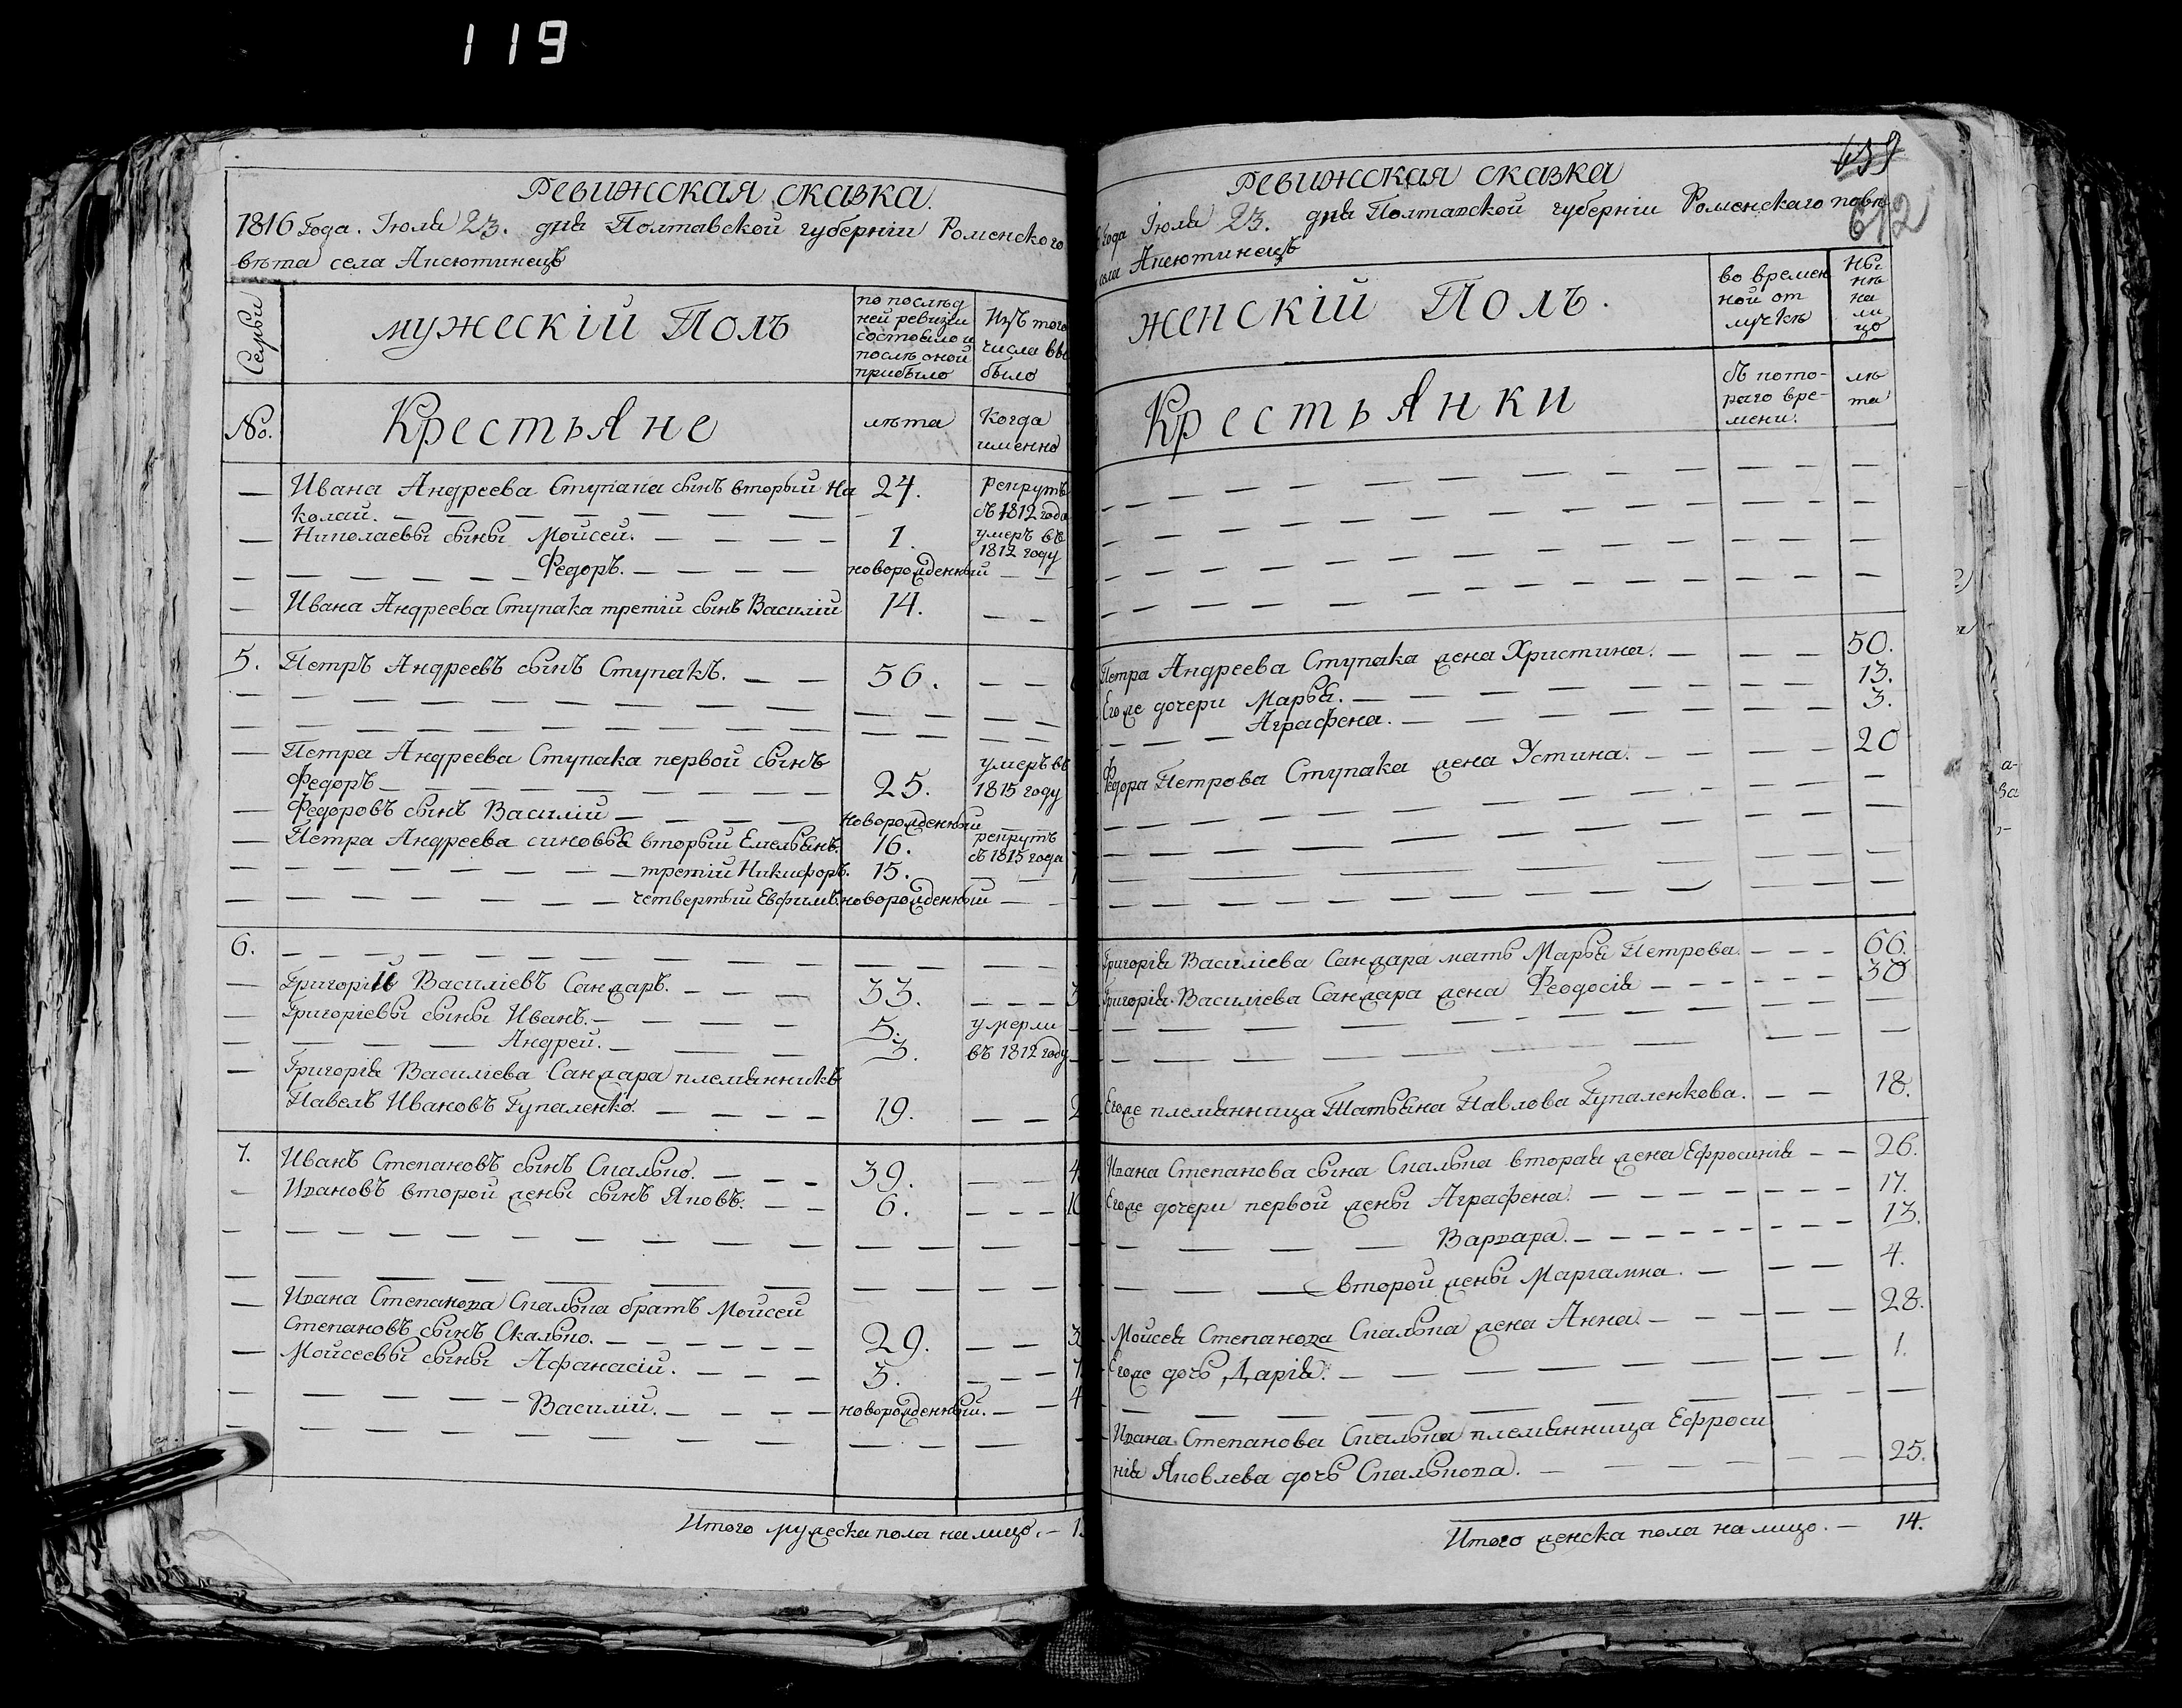 119
Ревижская сказка.
1816 Года. Іюля 23. дня Полтавской губерніи Роменского
вѣта села Ансютинецъ
Семьи
мужескій Полъ
по послѣд
ней ревизіи
состояло и
послѣ оной
прибыло
Изъ того
числа вы
было
No.
Крестьяне
лѣта
Когда
именно
Ивана Андреева Ступака сынъ вторый Ни 24. рекрутъ
колай. съ 1812 года
Николаевы сыны Мойсей. 1. умеръ въ
1812 году
Федоръ. новорожденный
Ивана Андреева Ступака третій сынъ Василій 14.
5. Петръ Андреевъ сынъ Ступакъ. 56.
Петра Андреева Ступака первой сынъ умеръ въ
Федоръ 25. 1815 году
Федоровъ сынъ Василій новорожденный
Петра Андреева синовья вторый Емельянъ. 16. рекрутъ
съ 1815 года
третій Никифоръ. 15.
четвертый Евфимъ. новорожденный
6.
Григорій Василіевъ Санжаръ. 33.
Григоріевы сыны Иванъ. 5. умерли
Андрей. 3. въ 1812 году
Григорія Василіева Санжара племянникъ
Павелъ Ивановъ Гупаленко. 19.
7. Иванъ Степановъ сынъ Скалько. 39.
Ивановъ второй жены сынъ Яковъ. 6.
Ивана Степанова Скалька братъ Мойсей
Степановъ сынъ Скалько. 29.
Мойсеевы сыны Афанасій. 3.
Василій. новорожденный.
Итого мужеска пола налицо. – 1
639
612
Ревижская сказка
Года Іюля 23. дня Полтавской губерніи Роменскаго повѣ
села Ансютинецъ
женскій Полъ.
во времен
ной от
лучкѣ
Ны
нѣ
на
ли
цо
Крестьянки
съ кото-
раго вре-
мени.
лѣ
та
Петра Андреева Ступака жена Христина. 50.
Егоже дочери Марья. 13.
Аграфена. 3.
Федора Петрова Ступака жена Устина. 20
Григорія Василіева Санжара мать Марья Петрова. 66.
Григорія Василіева Санжара жена Феодосія 30
Егоже племянница Татьяна Павлова Гупаленкова. 18.
Ивана Степанова сына Скалька вторая жена Ефросинія 26.
Егоже дочери первой жены Аграфена. 17.
Варвара. 13.
второй жены Маргамна. 4.
Мойсея Степанова Скалька жена Анна. 28.
Егоже дочь Дарія. 1.
Ивана Степанова Скалька племянница Ефроси
нія Яковлева дочь Скалькова. 25.
Итого женска пола налицо. – 14.